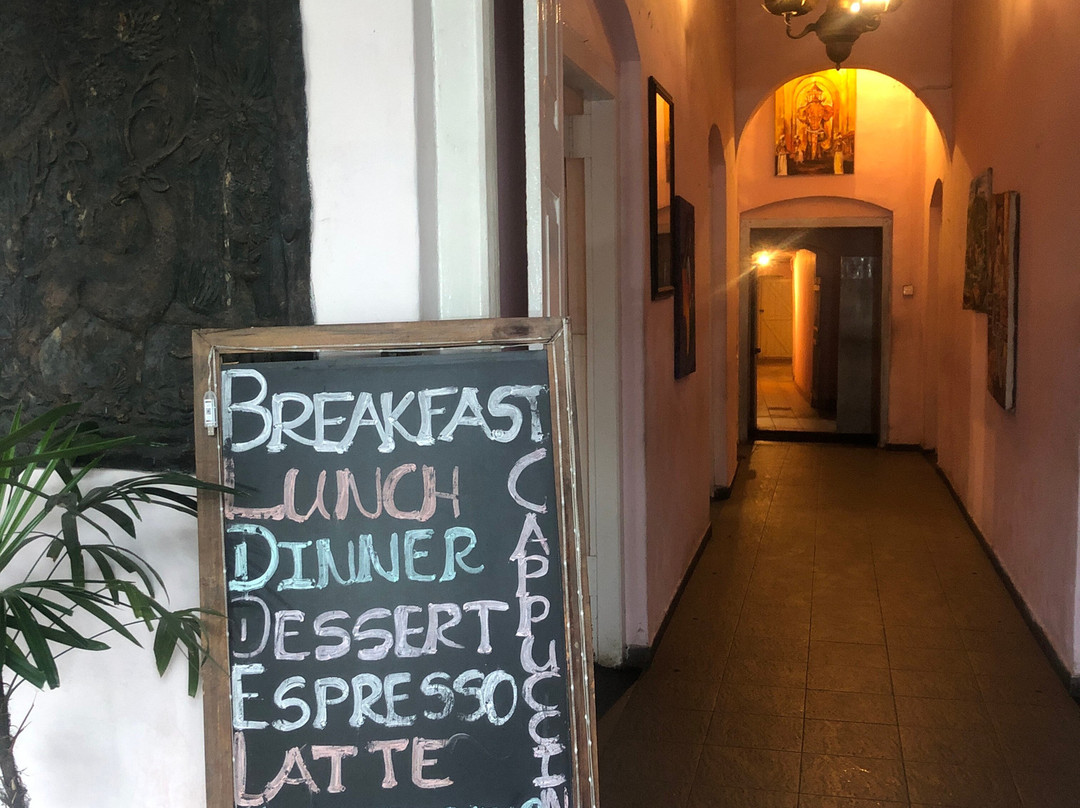 BREAKFAST
LUNCH
DINNER
DESSERT
ESPRESSO
LATTE
CAPPUCCIN